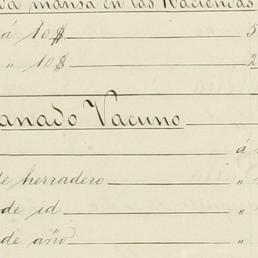 da mansa en las Haciendas
á 10$ 5
" 10$ 2
anado Vacuno
á
de herradero "
de id "
de año "